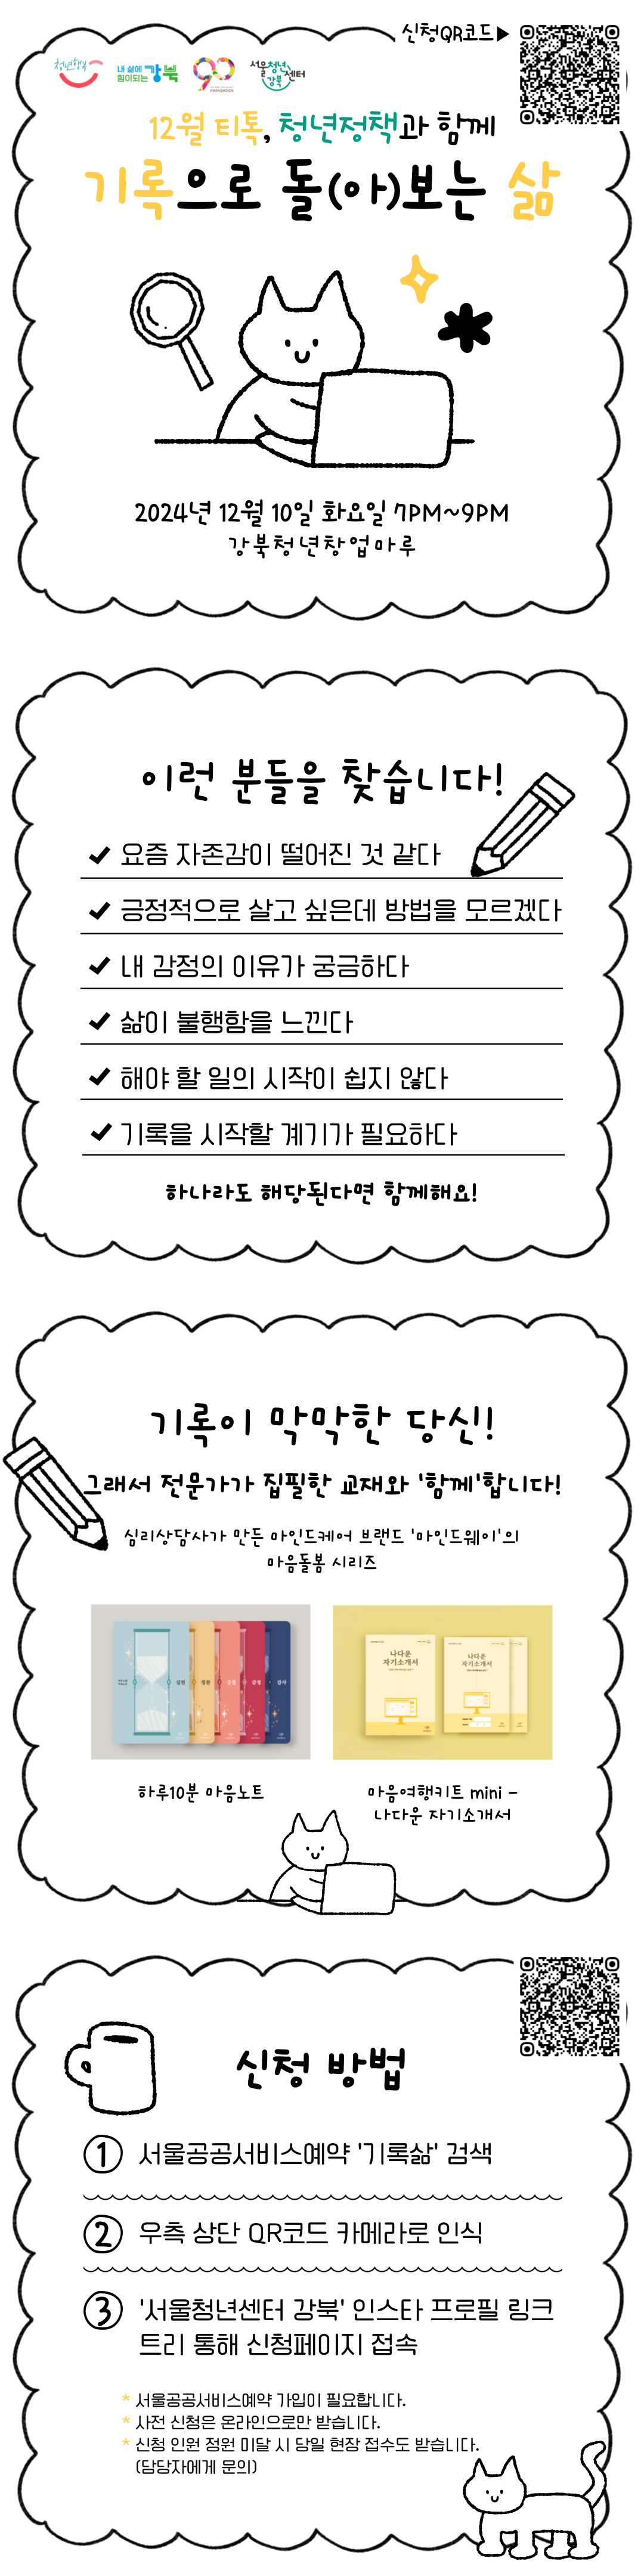 신청QR코드▶
청년행복
내 삶에
힘이되는 강북
90
서울청년
센터
강북
12월 티톡, 청년정책과 함께
기록으로 돌(아)보는 삶
2024년 12월 10일 화요일 7PM~9PM
강북청년창업마루
이런 분들을 찾습니다!
✔ 요즘 자존감이 떨어진 것 같다
✔ 긍정적으로 살고 싶은데 방법을 모르겠다
✔ 내 감정의 이유가 궁금하다
✔ 삶이 불행함을 느낀다
✔ 해야 할 일의 시작이 쉽지 않다
✔ 기록을 시작할 계기가 필요하다
하나라도 해당된다면 함께해요!
기록이 막막한 당신!
그래서 전문가가 집필한 교재와 '함께'합니다!
심리상담사가 만든 마인드케어 브랜드 '마인드웨이'의
마음돌봄 시리즈
감사
나다운
자기소개서
나다운
자기소개서
하루10분 마음노트
마음여행키트 mini -
나다운 자기소개서
신청 방법
① 서울공공서비스예약 '기록삶' 검색
② 우측 상단 QR코드 카메라로 인식
③ '서울청년센터 강북' 인스타 프로필 링크
트리 통해 신청페이지 접속
* 서울공공서비스예약 가입이 필요합니다.
* 사전 신청은 온라인으로만 받습니다.
* 신청 인원 정원 미달 시 당일 현장 접수도 받습니다.
(담당자에게 문의)